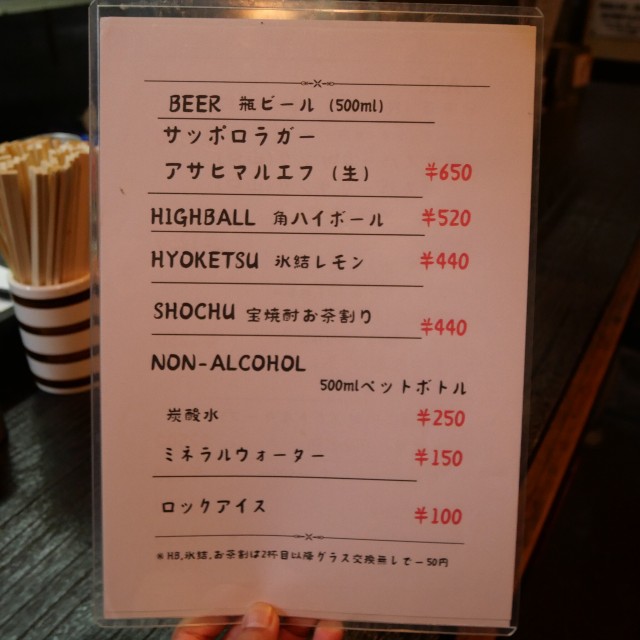 BEER 瓶ビール (500ml)
サッポロラガー
アサヒマルエフ (生) ¥650
HIGHBALL 角ハイボール ¥520
HYOKETSU 氷結レモン ¥440
SHOCHU 宝焼酎お茶割り ¥440
NON-ALCOHOL
500mlペットボトル
炭酸水 ¥250
ミネラルウォーター ¥150
ロックアイス ¥100
※HB,氷結,お茶割は2杯目以降グラス交換無しで-50円